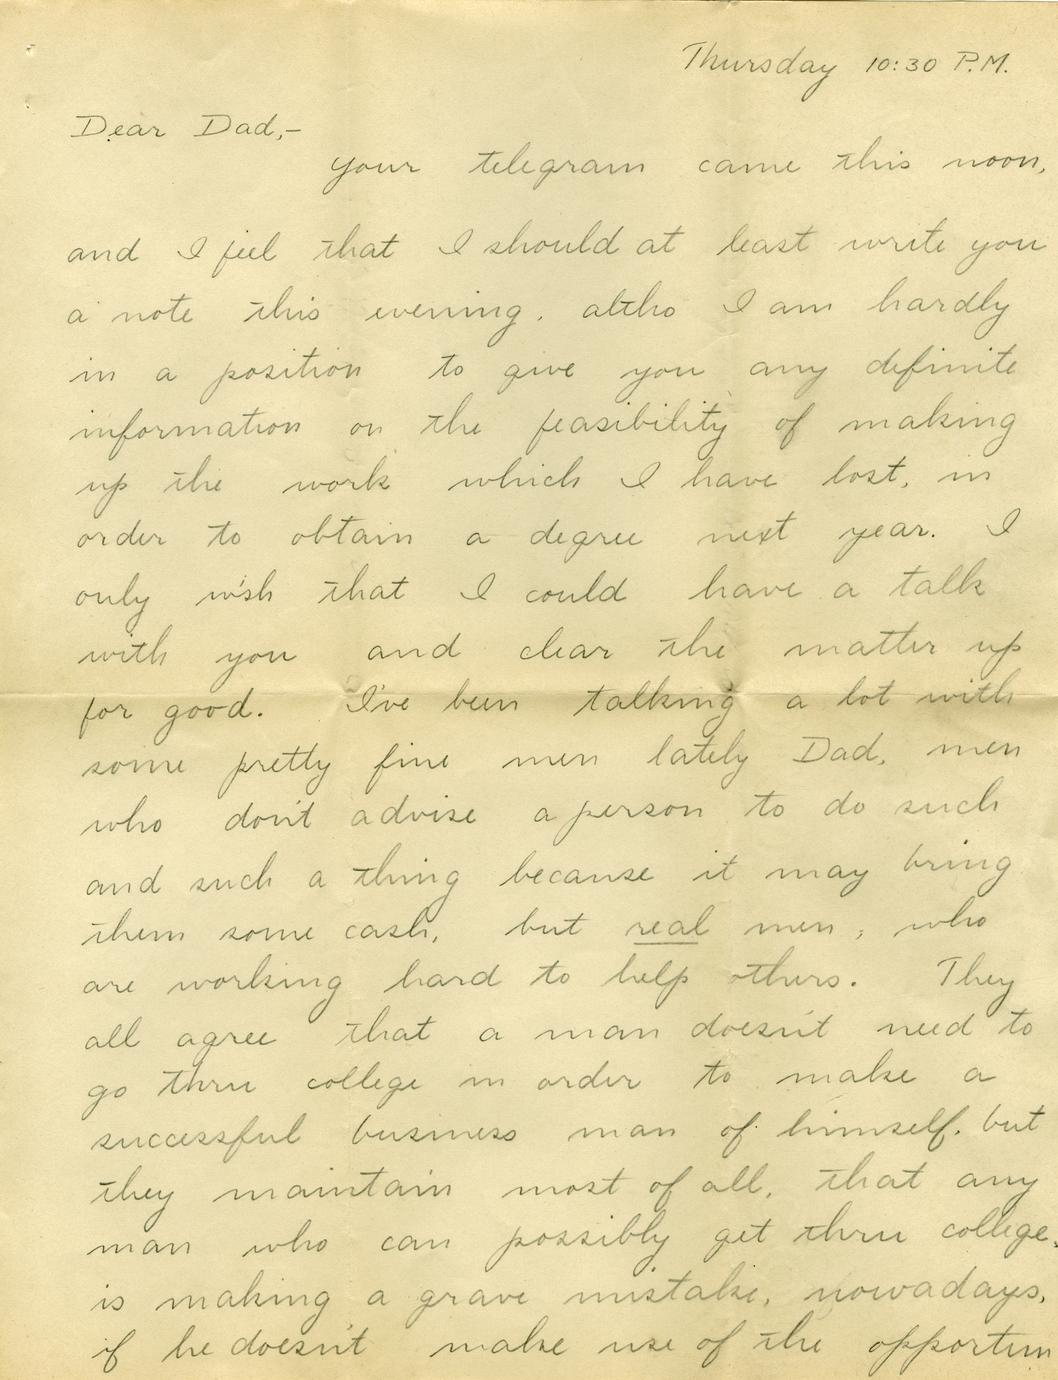 Thursday 10:30 P.M.
Dear Dad,-
your telegram came this noon,
and I feel that I should at least write you
a note this evening, altho I am hardly
in a position to give you any definite
information on the feasibility of making
up the work which I have lost, in
order to obtain a degree next year. I
only wish that I could have a talk
with you and clear the matter up
for good. I've been talking a lot with
some pretty fine men lately Dad, men
who don't advise a person to do such
and such a thing because it may bring
them some cash, but real men, who
are working hard to help others. They
all agree that a man doesn't need to
go thru college in order to make a
successful business man of himself, but
they maintain most of all, that any
man who can possibly get thru college,
is making a grave mistake, nowadays,
if he doesn't make use of the opportun